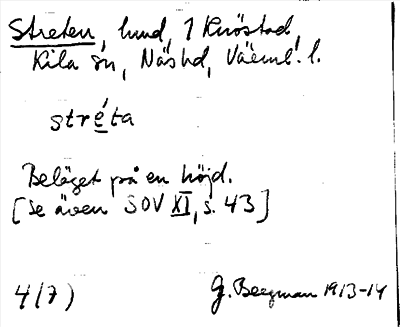 Streten, hmd, 1 Knöstad,
Kila sn, Näshd, Värml. l.
stréta
Beläget på en höjd.
[Se även SOV XI, s. 43]
4(7) G. Bergman 1913-14